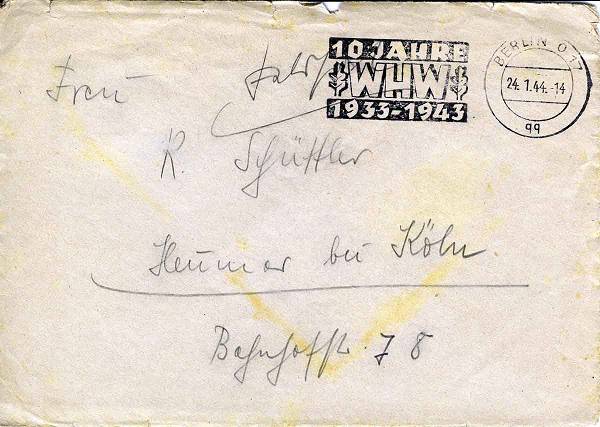 10 JAHRE
WHW
1933-1943
BERLIN O 17
24.1.44.-14
qq
Frau
R. Schüttler
Heumar bei Köln
Bahnhofstr. 78